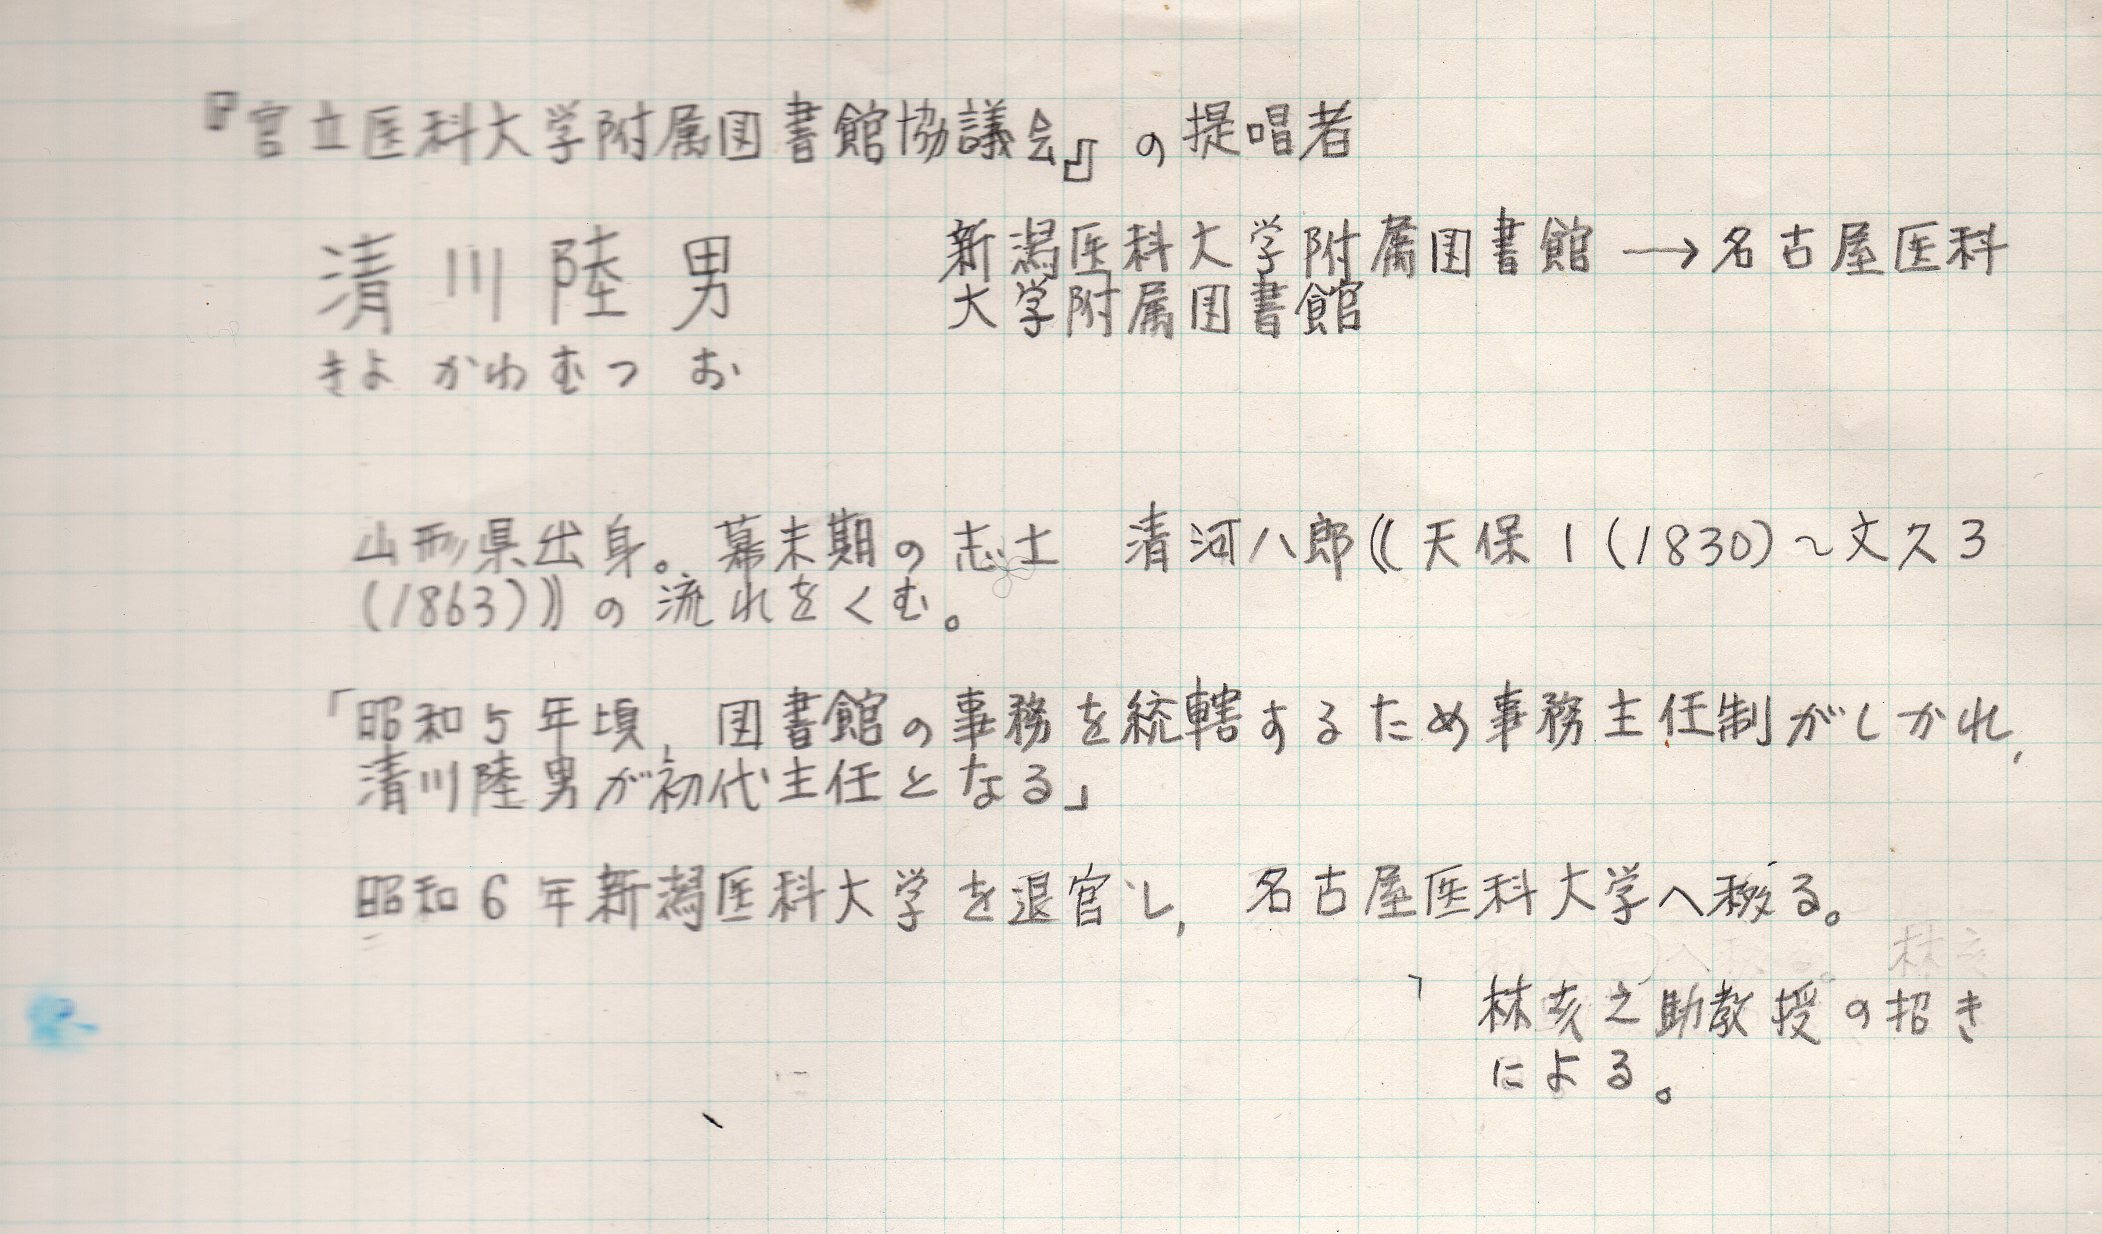 『官立医科大学附属図書館協議会』の提唱者
清川陸男
きよかわむつお
新潟医科大学附属図書館→名古屋医科
大学附属図書館
山形県出身。幕末期の志士 清河八郎《天保1(1830)~文久3
(1863)》の流れをくむ。
「昭和5年頃,図書館の事務を統轄するため事務主任制がしかれ,
清川陸男が初代主任となる」
昭和6年新潟医科大学を退官し,名古屋医科大学へ移る。
林亥之助教授の招き
による。